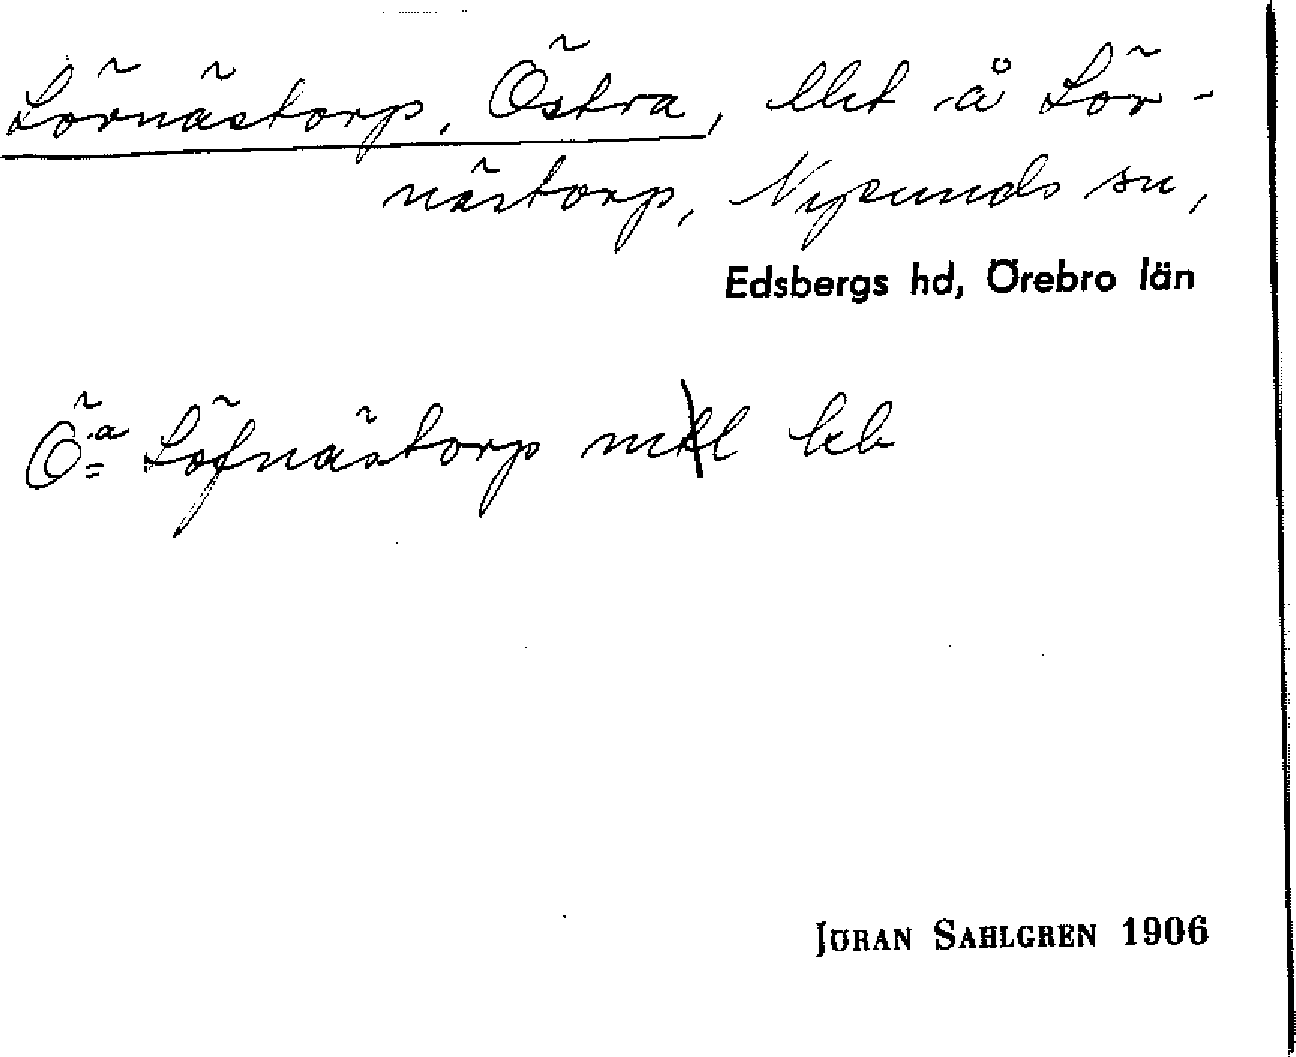 Lörnästorp, Östra, llht å Lör-
nästorp, Nysunds sn,
Edsbergs hd, Örebro län
Ö:a Löfnästorp
JÖRAN SAHLGREN 1906